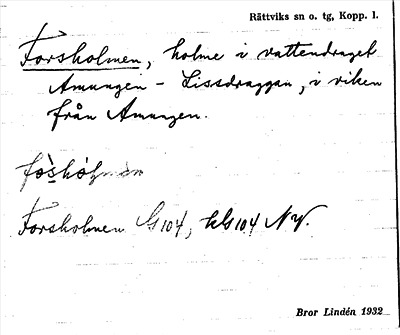 Rättviks sn o. tg, Kopp. l.
Forsholmen, holme i vattendraget
Amungen - Lissdraggan, i viken
från Amungen.
Forsholmen G104, NV.
Bror Lindén 1932